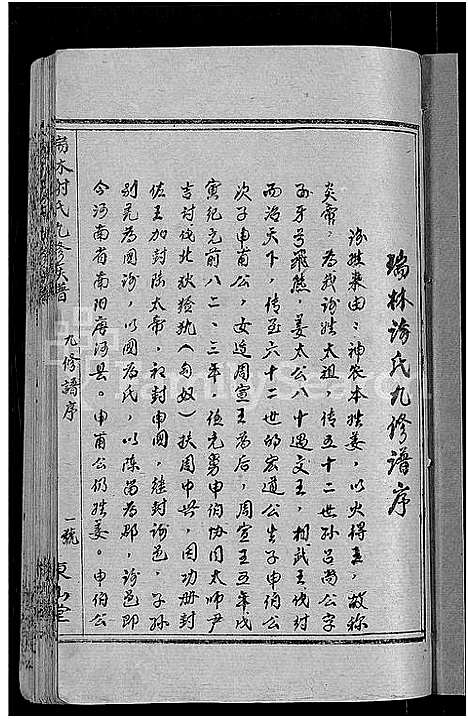 瑞林谢氏九修谱序
谢姓来由：神农本姓姜，以火得王，故称
炎帝，为我谢姓太祖，传五十二世孙吕尚公字
子牙号飛熊，姜太公八十遇文王，相武王伐纣
而治天下，传至六十二世邰宏道公生子申伯公
次子申甫公，女适周宣王为后，周宣王五年戊
寅纪元前八二、三年，伍元舅申伯协同太师尹
吉讨伐北狄猃狁（匈奴）扶周中兴，因功册封
佐王加封陈太帝，初封申国，继封谢邑，子孙
别居为国谢，以国为氏，以陈留为郡，谢邑即
今河南省南阳唐河县。申甫公仍姓姜。申伯公
林谢氏九修族譜
九修譜序
一號
東山堂